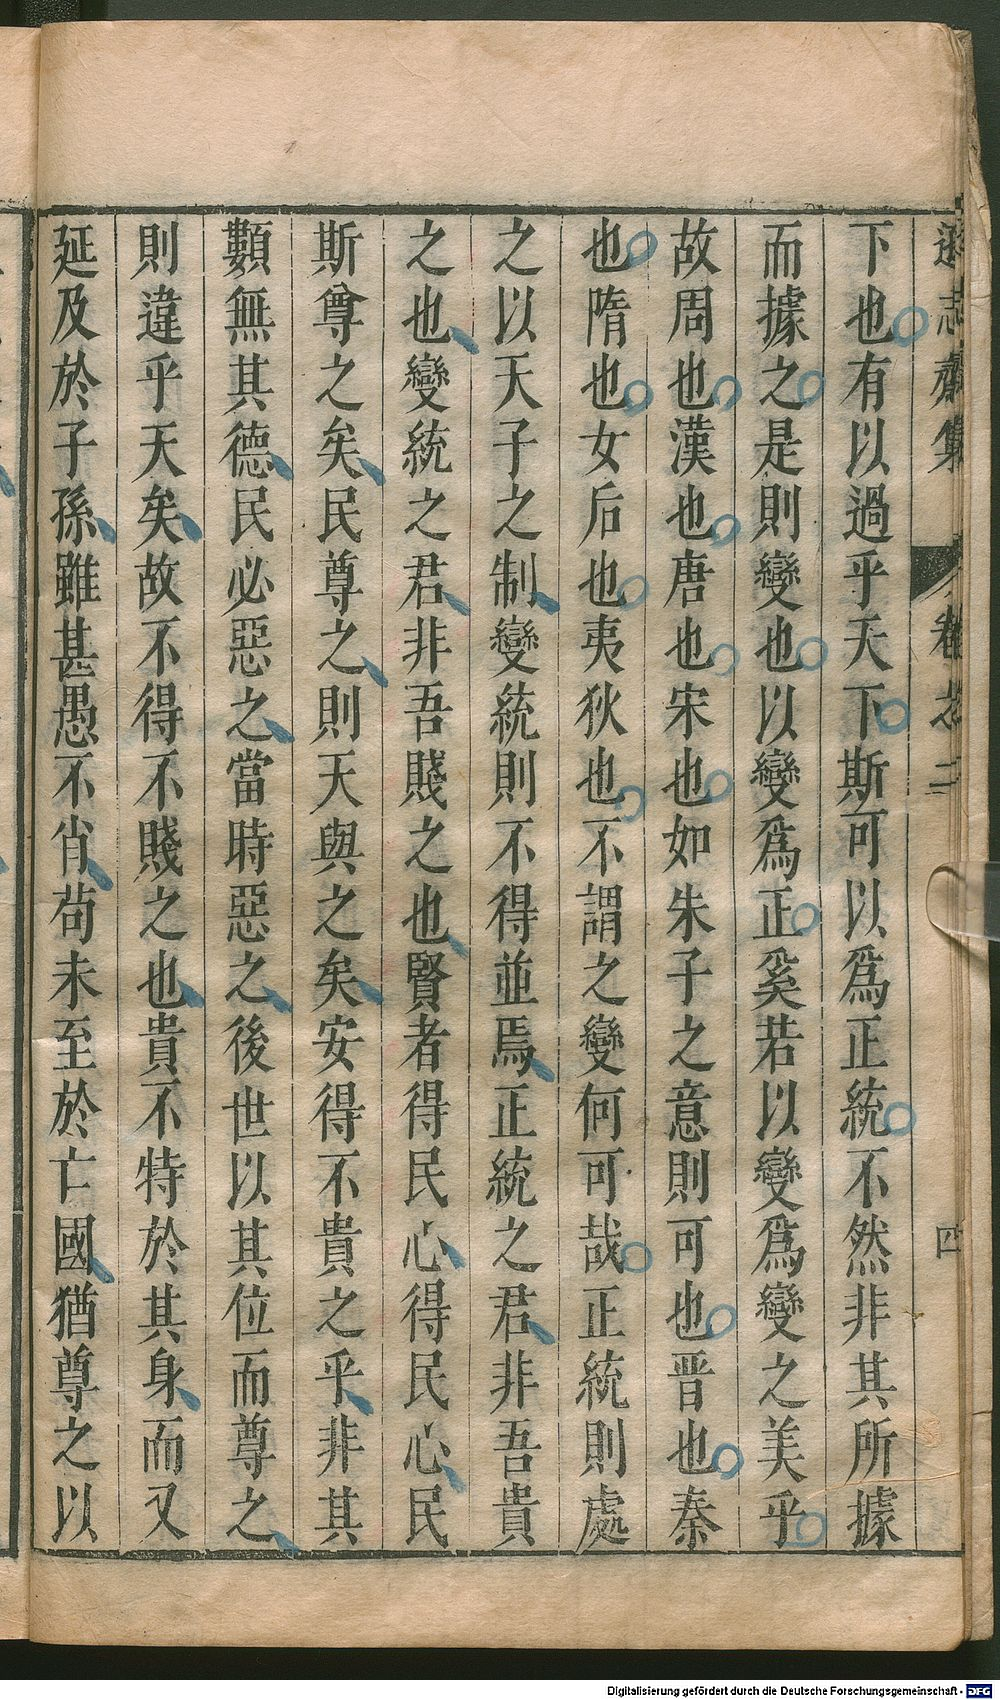 遜志齋集 卷之二 四
下也有以過乎天下斯可以爲正統不然非其所據
而據之是則變也以變爲正奚若以變爲變之美乎
故周也漢也唐也宋也如朱子之意則可也晉也秦
也隋也女后也夷狄也不謂之變何可哉正統則處
之以天子之制變統則不得並焉正統之君非吾貴
之也變統之君非吾賤之也賢者得民心得民心民
斯尊之矣民尊之則天與之矣安得不貴之乎非其
類無其德民必惡之當時惡之後世以其位而尊之
則違乎天矣故不得不賤之也貴不特於其身而又
延及於子孫雖甚愚不肖苟未至於亡國猶尊之以
Digitalisierung gefördert durch die Deutsche Forschungsgemeinschaft - DFG